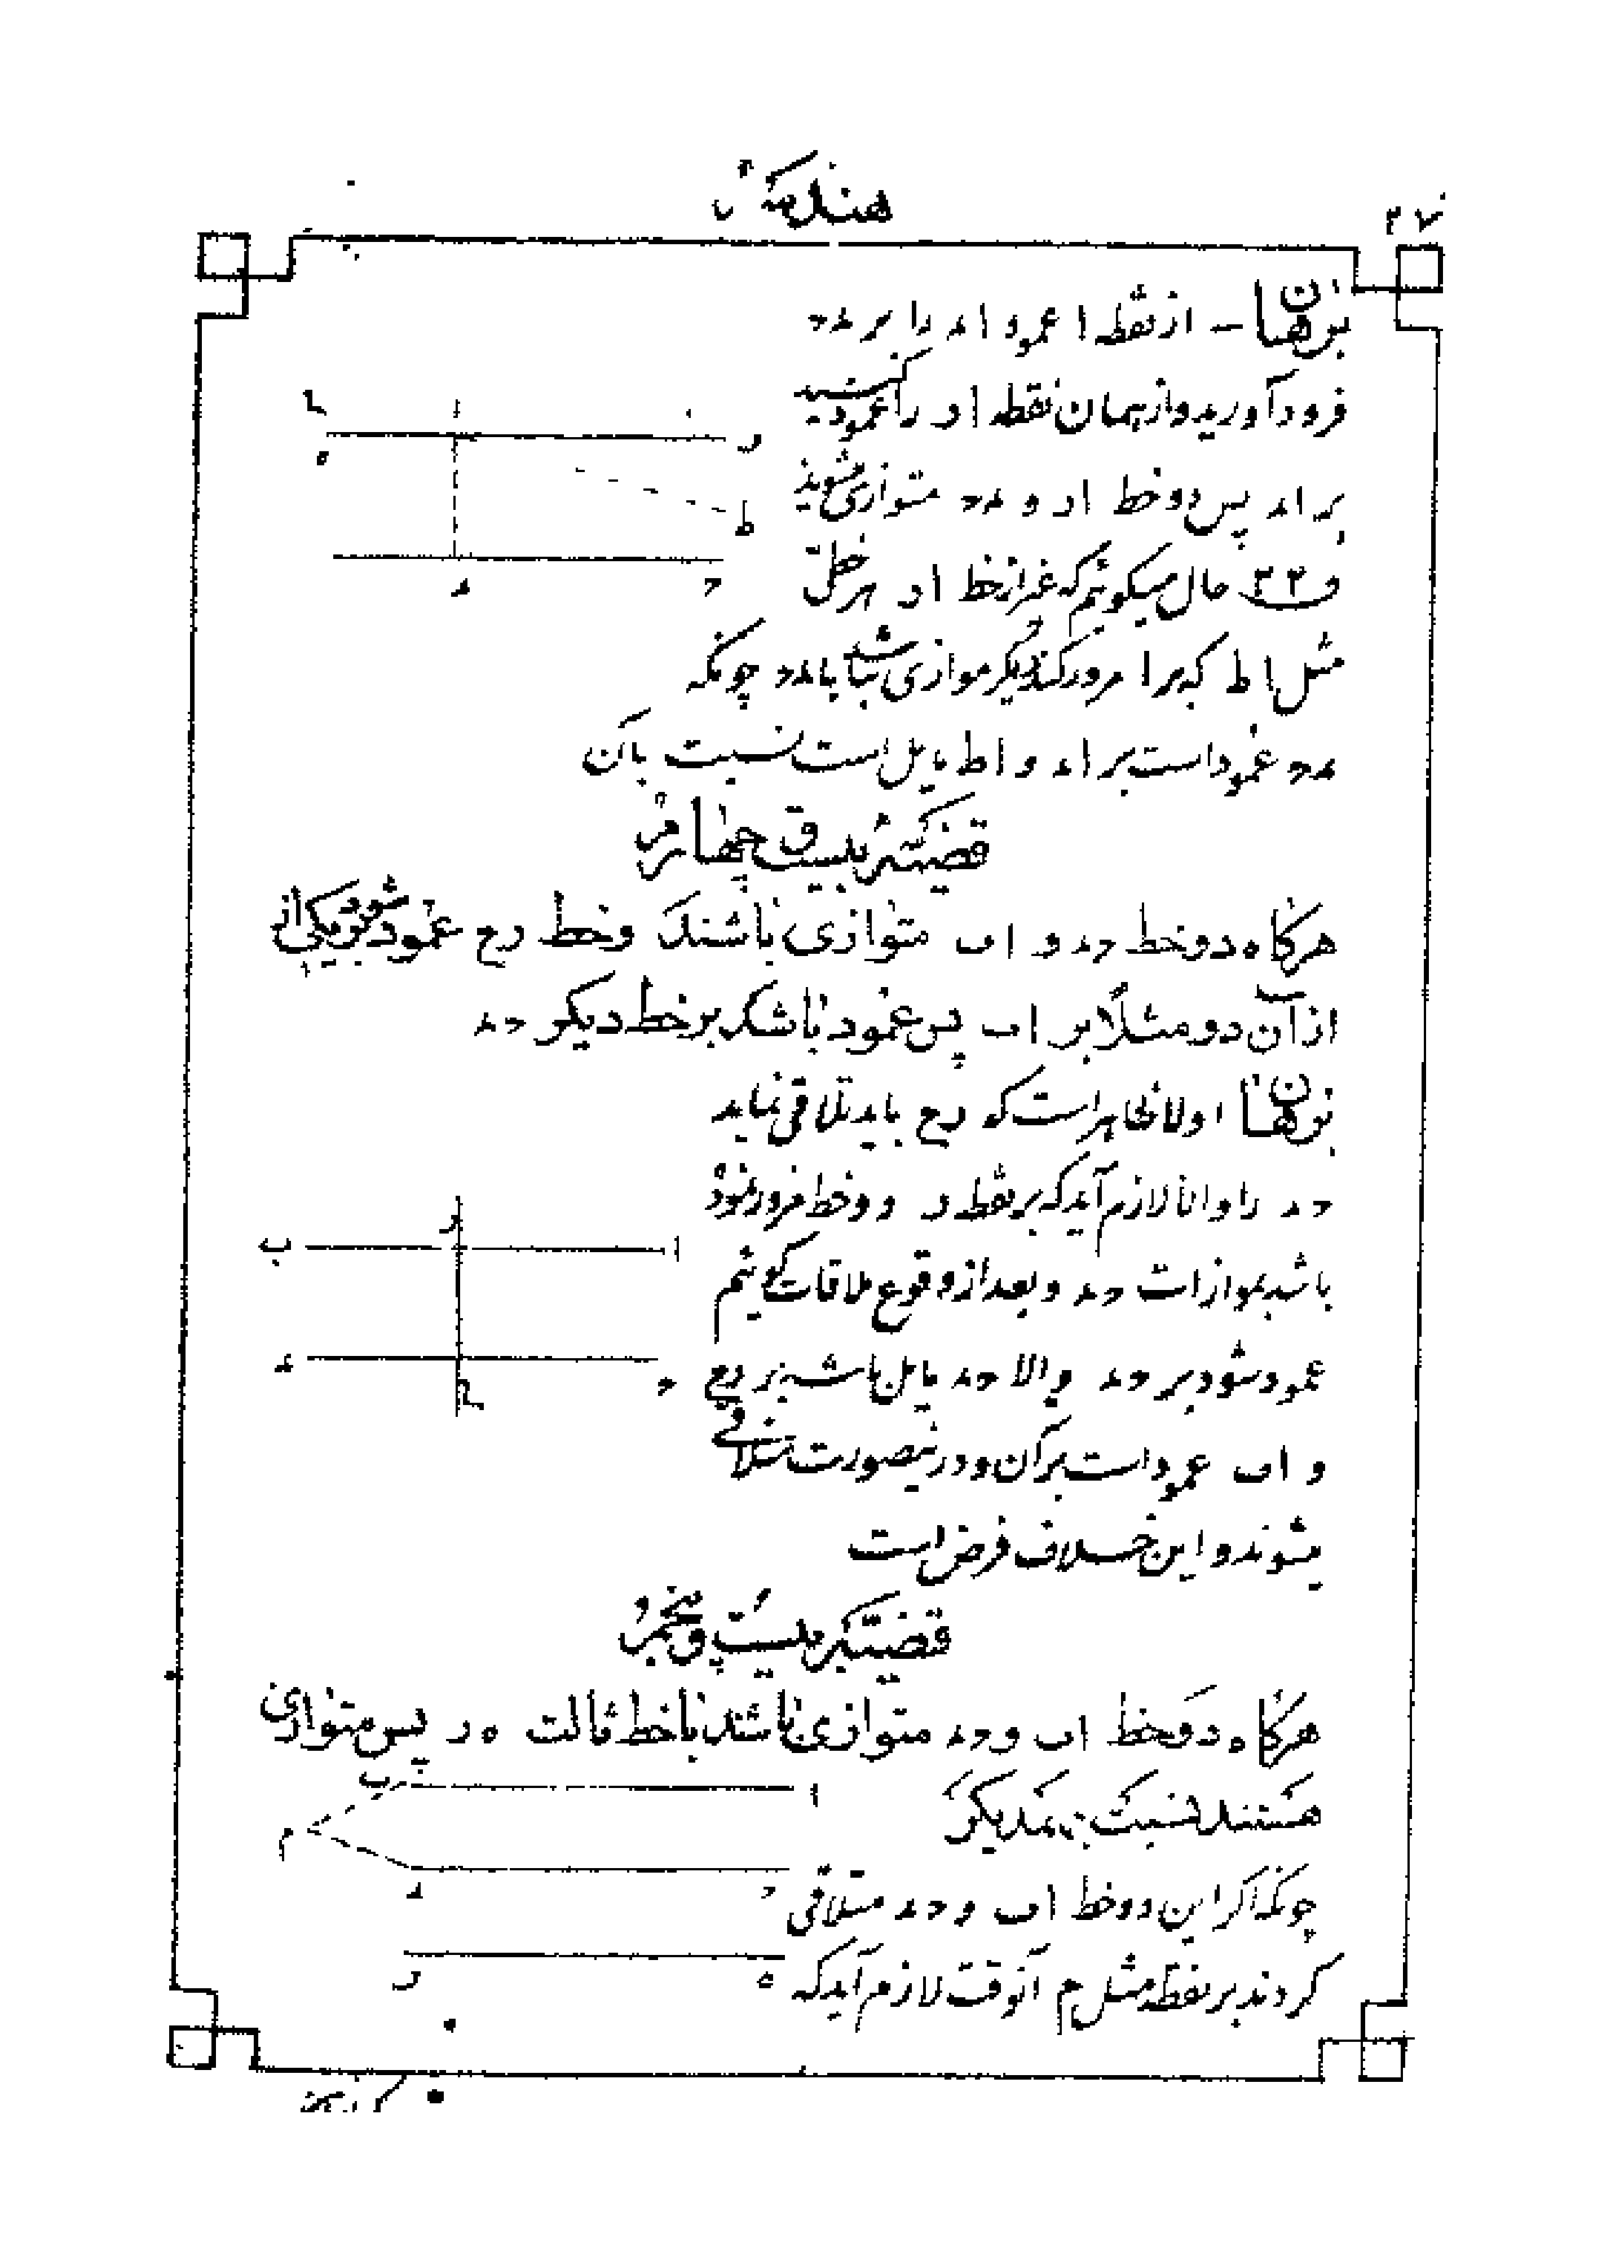 هندسهٔ
۳۷
برهان – از نقطه ا عمود اء را بر ءح
فرود آورید و از همان نقطه ار را عمود کنید
بر اء پس دو خط ار و ءح متوازی میشوند
و ۳۳ حال میگوئیم که غیر از خط ار هر خطی
مثل اط که بر ا مرور کند دیگر موازی نباشد با ءح چونکه
ءح عمود است بر اء و اط مایل است نسبت بآن
قضیهٔ بیست و چهارم
هرگاه دو خط حء و اب متوازی باشند و خط رح عمود شود بر یکی از
از آن دو مثلاً بر اب پس عمود باشد بر خط دیگر حء
برهان اولا ظاهر است که رح باید تلاقی نماید
حء را والا لازم آید که بر نقطه ر دو خط مرور نمود
باشد بموازات حء و بعد از وقوع ملاقات گوئیم
عمود شود بر حء والا حء مایل باشد بر رح
و اب عمود است بر آن و درینصورت متلاقی
میشوند و این خلاف فرض است
قضیهٔ بیست و پنجم
هرگاه دو خط اب و حء متوازی باشند با خط ثالث ه ر پس متوازی
هستند نسبت بهمدیگر
چونکه اگر این دو خط اب و حء متلاقی
گردند بر نقطه مثل م آنوقت لازم آید که